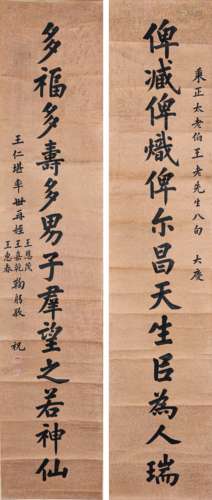 秉正太老伯王老先生八旬 大慶
俾臧俾熾俾尔昌天生臣為人瑞
多福多壽多男子羣望之若神仙
王仁堪率世再姪
王恩茂
王嘉乾
王惠春
鞠躬敬 祝